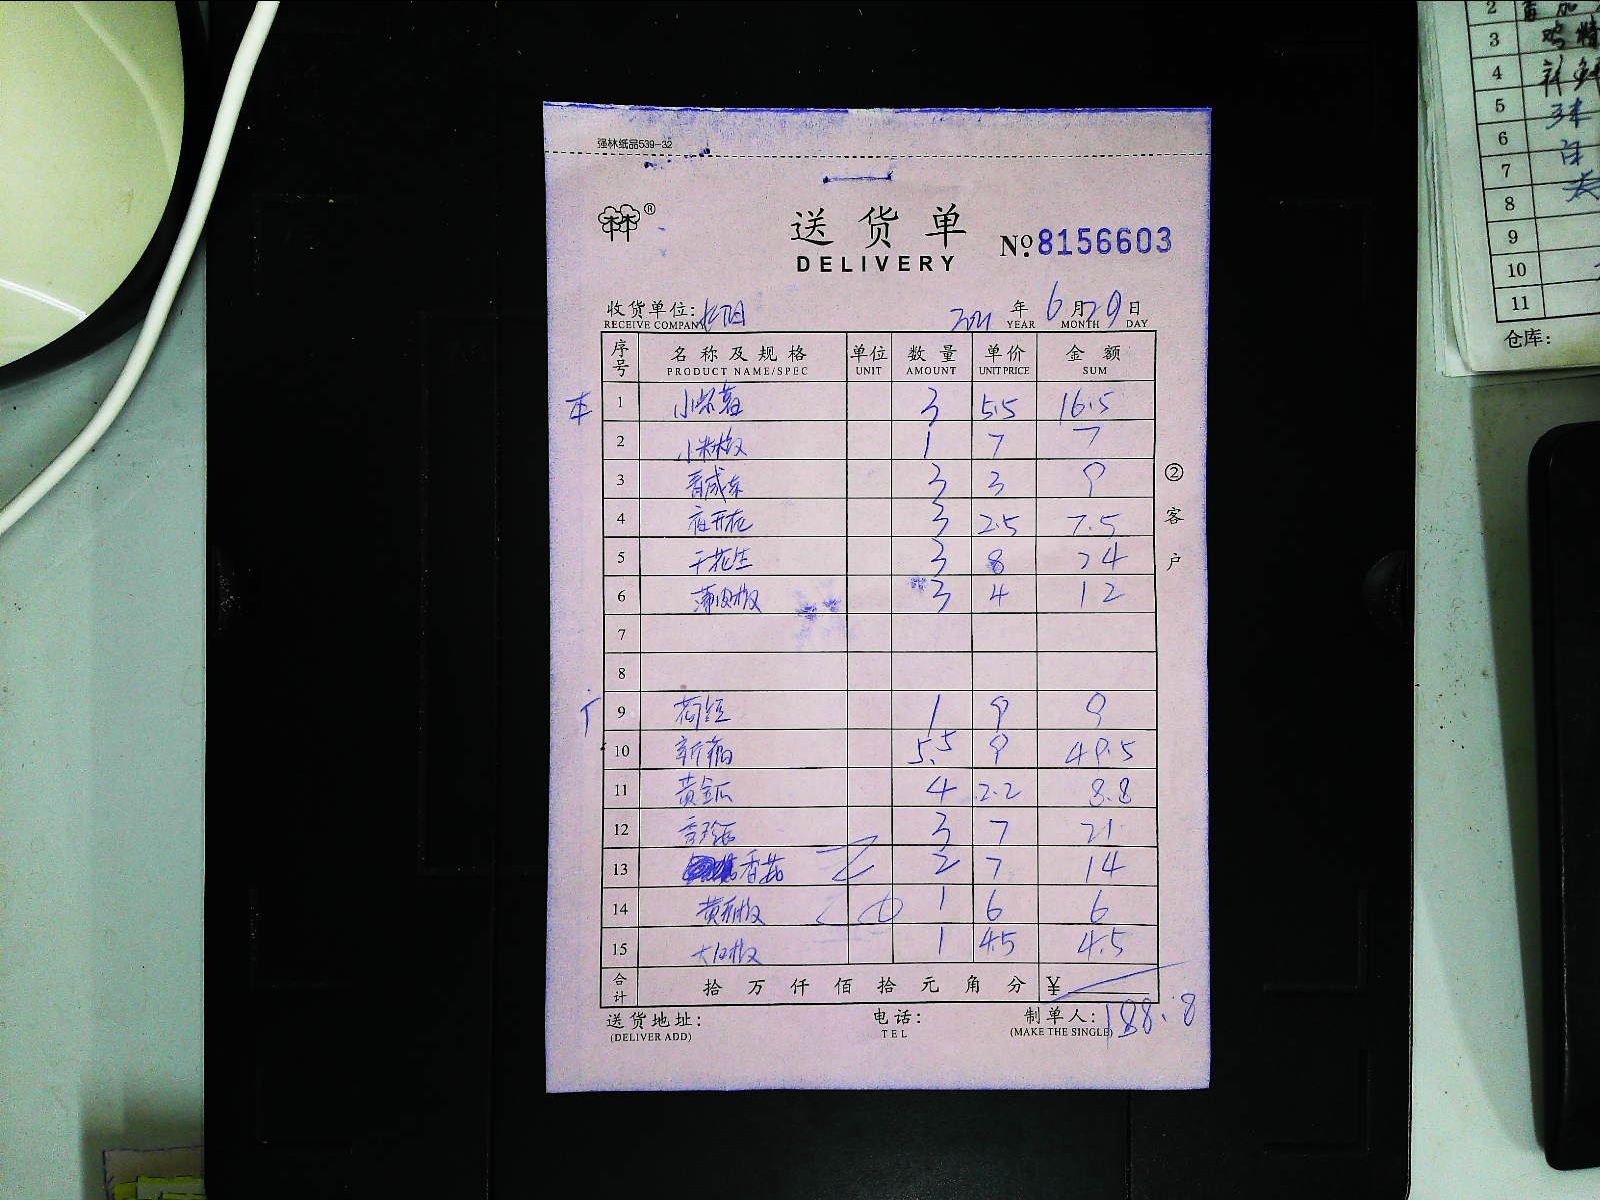 强林纸品539-32
林林®
送货单
DELIVERY
№8156603
收货单位: 2021年6月29日
RECEIVE COMPANY YEAR MONTH DAY
序号 名称及规格 单位 数量 单价 金额
PRODUCT NAME/SPEC UNIT AMOUNT UNIT PRICE SUM
本 1 3 5.5 16.5
2 小米椒 1 7 7
3 3 3 9
4 夜开花 3 2.5 7.5
5 干花生 3 8 24
6 薄肉椒 3 4 12
7
8
9 1 9 9
10 5.5 9 49.5
11 黄金瓜 4 2.2 8.8
12 3 7 21
13 香菇 2 7 14
14 1 6 6
15 大红椒 1 4.5 4.5
合计 拾万仟佰拾元角分 ¥
188.8
送货地址: 电话: 制单人:
(DELIVER ADD) TEL (MAKE THE SINGLE)
②客户
2
3 鸡精
4
5
6
7
8
9
10
11
仓库: